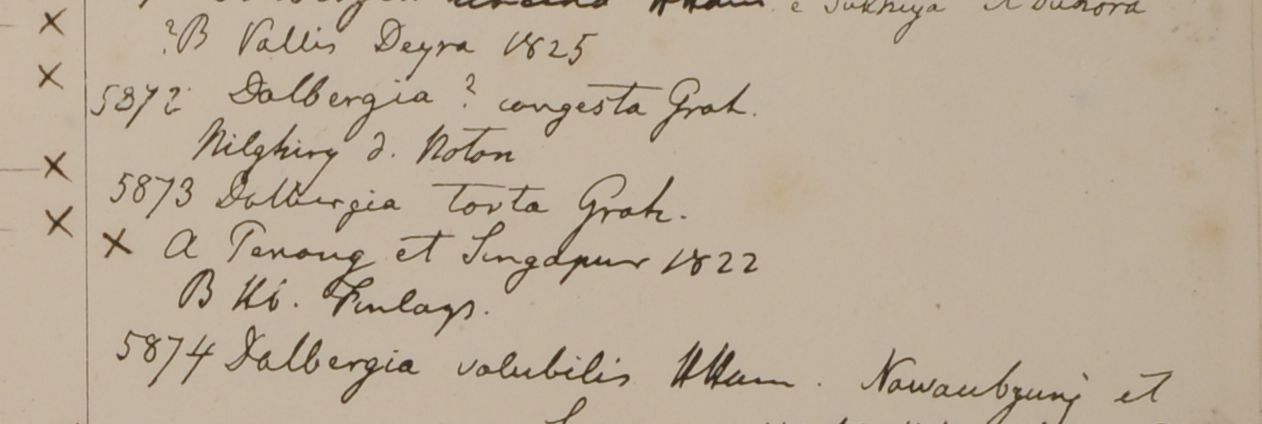 e Sukhiya
?B Vallis Deyra 1825
5872 Dalbergia ? congesta Grah.
Nilghiry d. Noton
5873 Dalbergia torta Grah.
× a Penang et Singapur 1822
B Hb. Finlays.
5874 Dalbergia volubilis HHam. Nawaubgunj et